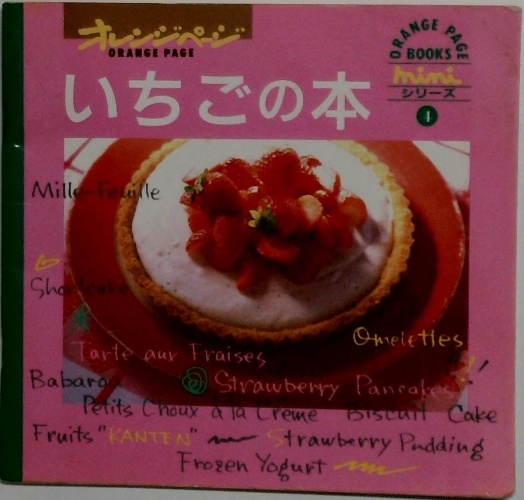 オレンジページ
ORANGE PAGE
いちごの本
ORANGE PAGE
BOOKS
mini
シリーズ
4
Mille-Feuille
Shortcake
Omelettes
Tarte aux Fraises
Babaroa
Strawberry Pancakes
Petits Choux à la Crème Biscuit Cake
Fruits "KANTEN" Strawberry Pudding
Frozen Yogurt